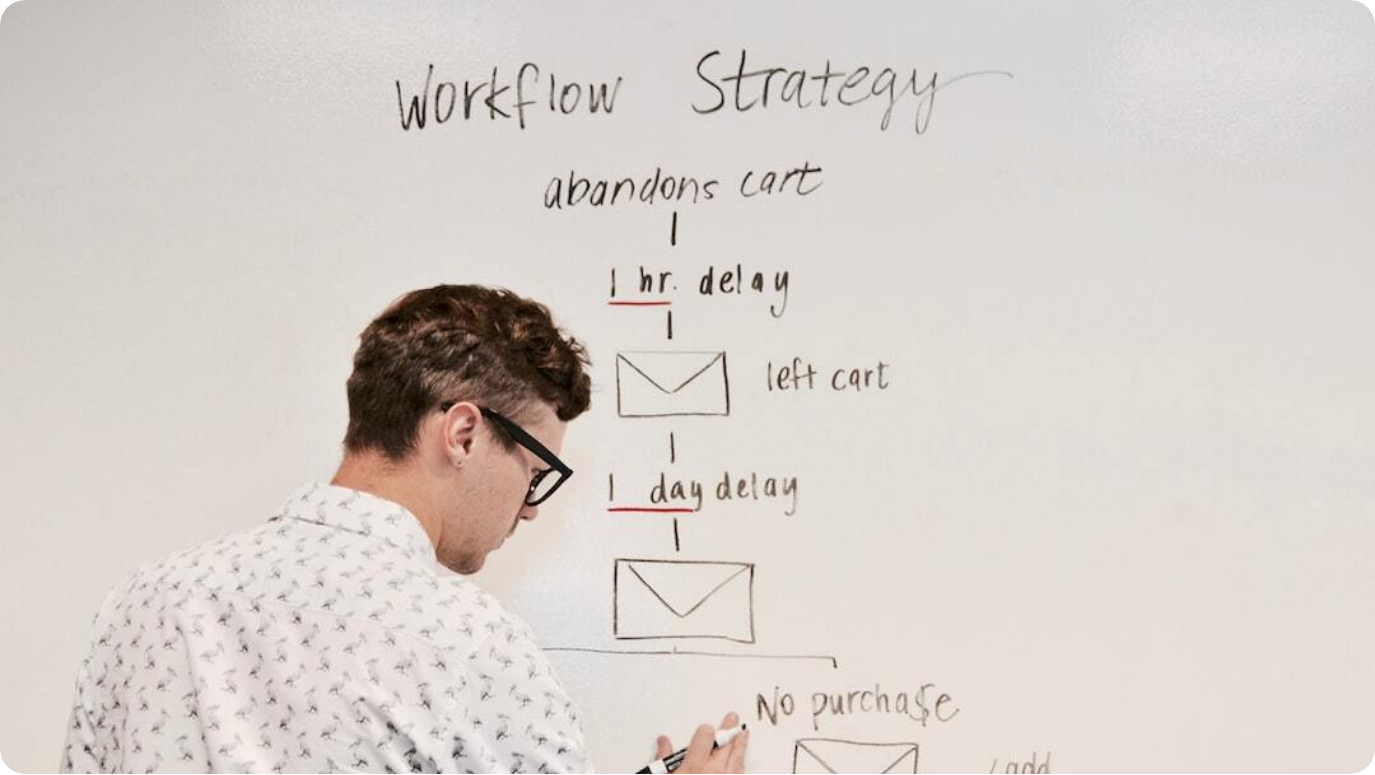 Workflow Strategy
abandons cart
1 hr. delay
left cart
1 day delay
No purchase
add